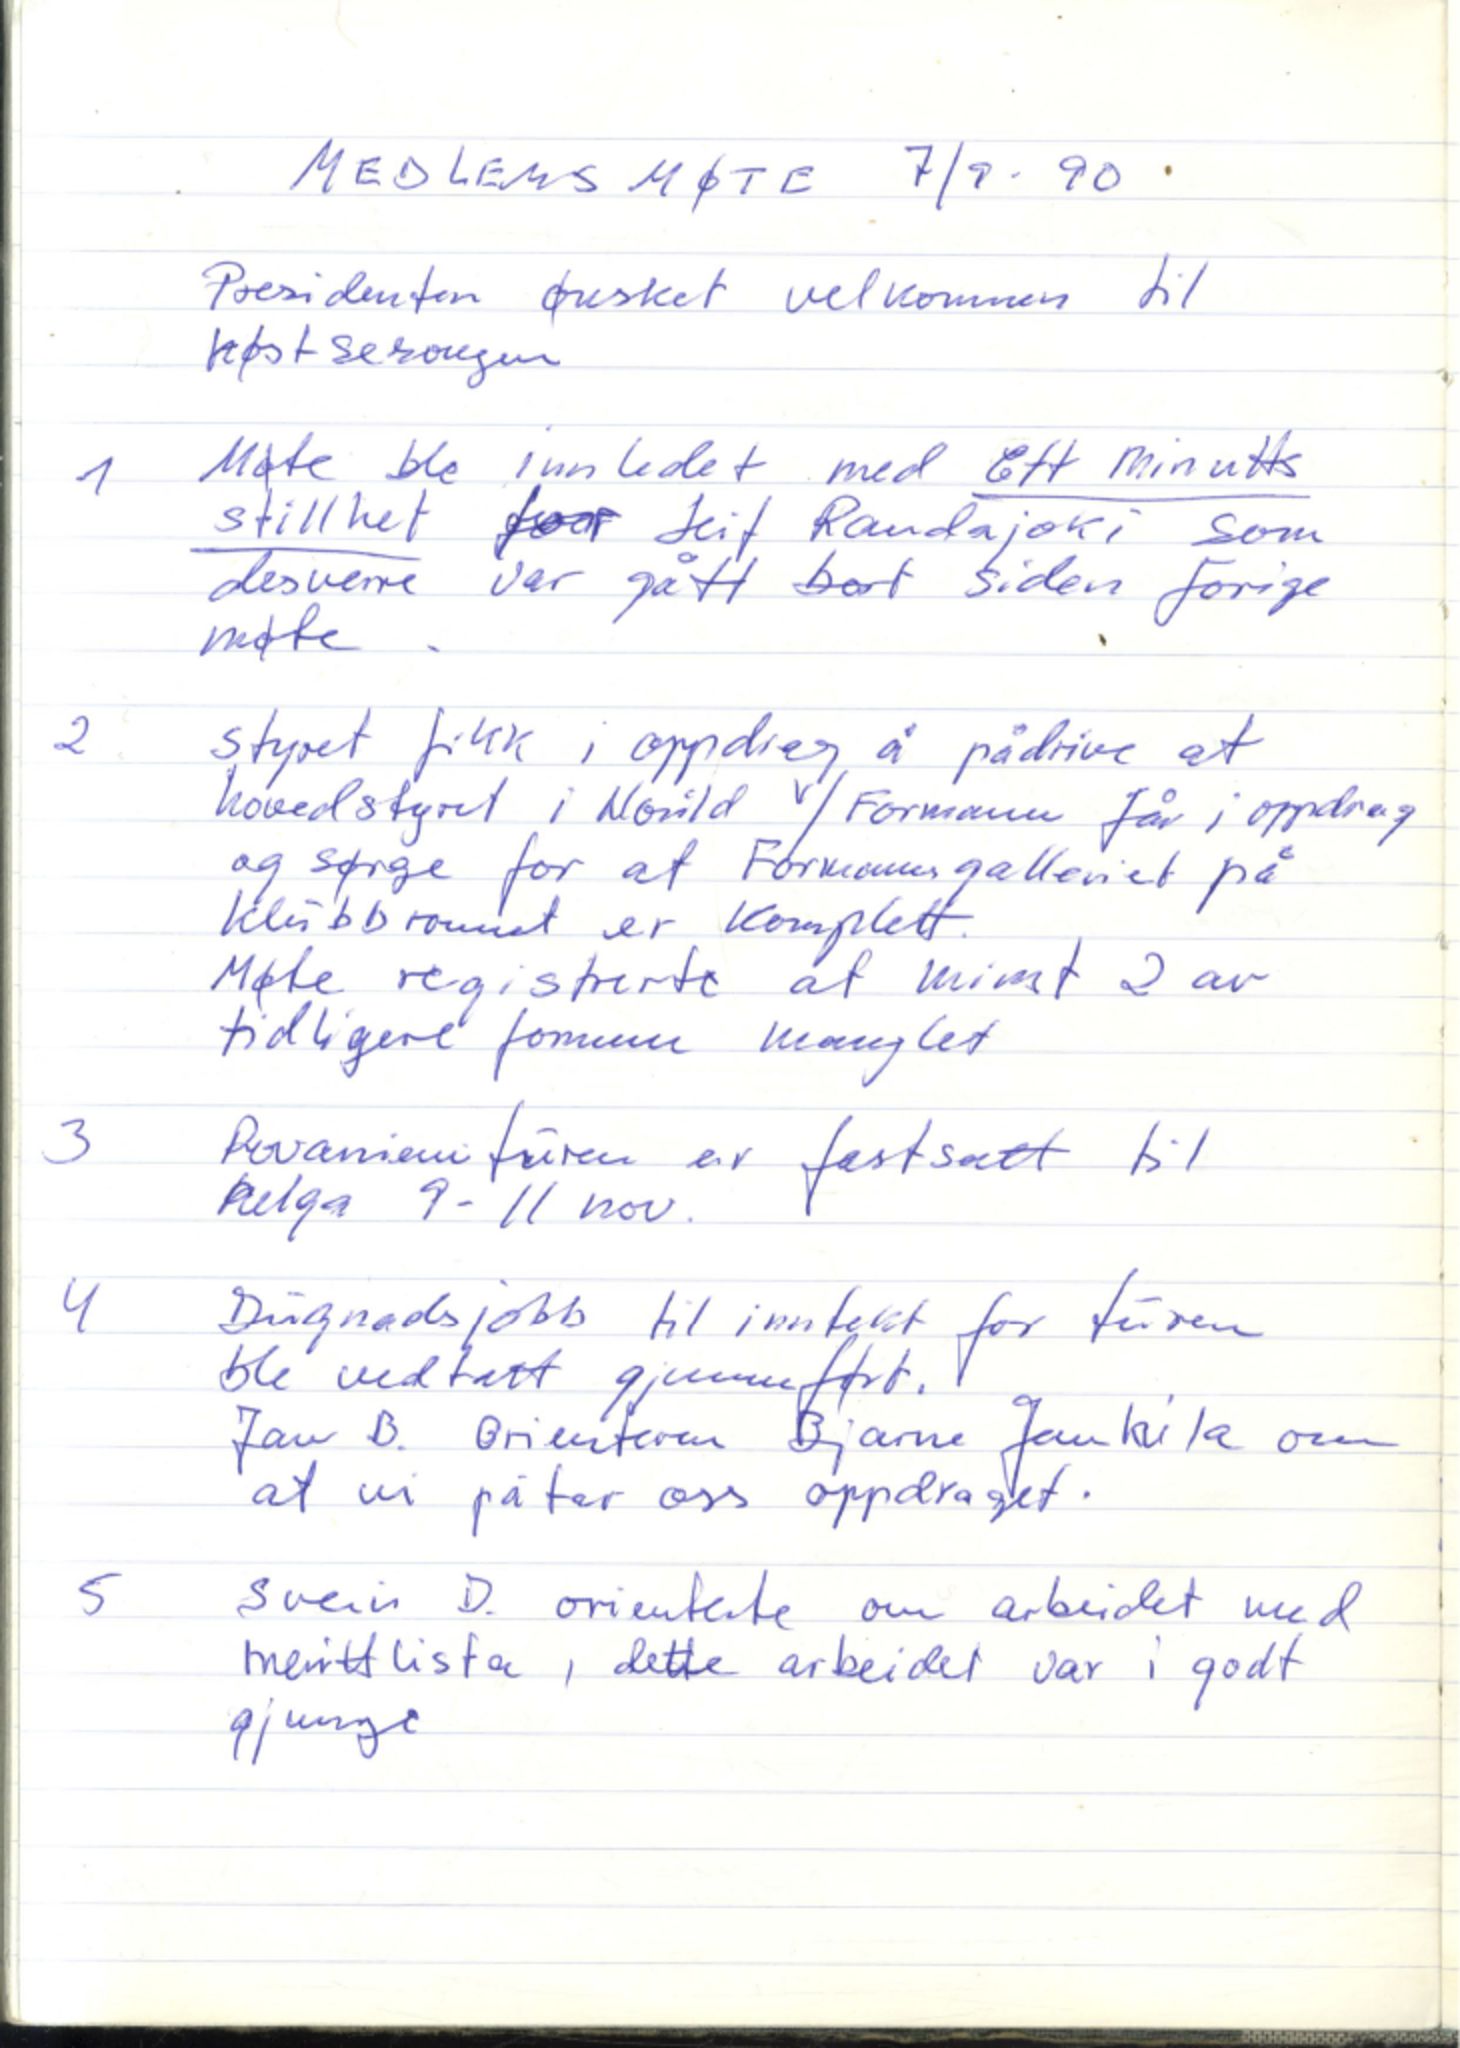 MEDLEMSMØTE 7/9. 90.
Presidenten ønsket velkommen til
høstsesongen
1 Møte ble innledet med Ett minutts
stillhet for Leif Randajoki som
desverre var gått bort siden forige
møte.
2 styret fikk i oppdrag å pådrive at
hovedstyret i Norild v/Formann får i oppdrag
og sørge for at Formannsgalleriet på
klubbrommet er komplett.
Møte registrerte at minst 2 av
tidligere formenn manglet
3 Rovaniemi turen er fastsatt til
helga 9-11 nov.
4 Dugnadsjobb til inntekt for turen
ble vedtatt gjennomført.
Jan B. orienterer Bjarne Jankila om
at vi påtar oss oppdraget.
5 Svein D. orienterte om arbeidet med
merittlista, dette arbeidet var i godt
gjenge